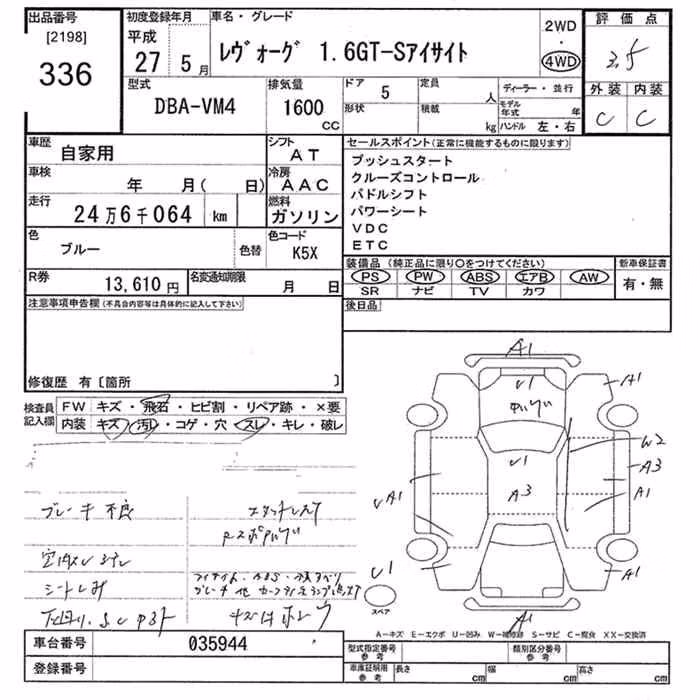 出品番号
[2198]
336
初度登録年月
平成
27 5月
車名・グレード
レヴォーグ 1.6GT-Sアイサイト
2WD
・
4WD
評価点
3.5
外装 内装
C C
型式
DBA-VM4
排気量
1600
CC
ドア
5
形状
定員
人
積載
kg
ディーラー・並行
モデル年式 年
ハンドル 左・右
車歴
自家用
シフト
AT
車検
年 月( 日)
冷房
AAC
走行
24万6千064 km
燃料
ガソリン
色
ブルー
色替
色コード
K5X
R券
13,610円
名変通知期限
月 日
セールスポイント(正常に機能するものに限ります)
プッシュスタート
クルーズコントロール
パドルシフト
パワーシート
VDC
ETC
装備品(純正品に限り○をつけてください)
PS PW ABS エアB AW
SR ナビ TV カワ
新車保証書
有・無
後日品
注意事項申告欄(不具合内容等は具体的に記入して下さい)
修復歴 有〔箇所 〕
検査員
記入欄
FW キズ・飛石・ヒビ割・リペア跡・×要
内装 キズ・汚レ・コゲ・穴・スレ・キレ・破レ
ブレーキ不良
シートしみ
A1
U1
A1
W2
A3
A1
U1
A3
A1
A1
A1
U1
スペア
A―キズ E―エクボ U―凹み W―補修跡 S―サビ C―腐食 XX―交換済
車台番号
035944
登録番号
型式指定番号
参考
類別区分番号
参考
車庫証明用
参考
長さ cm
幅 cm
高さ cm